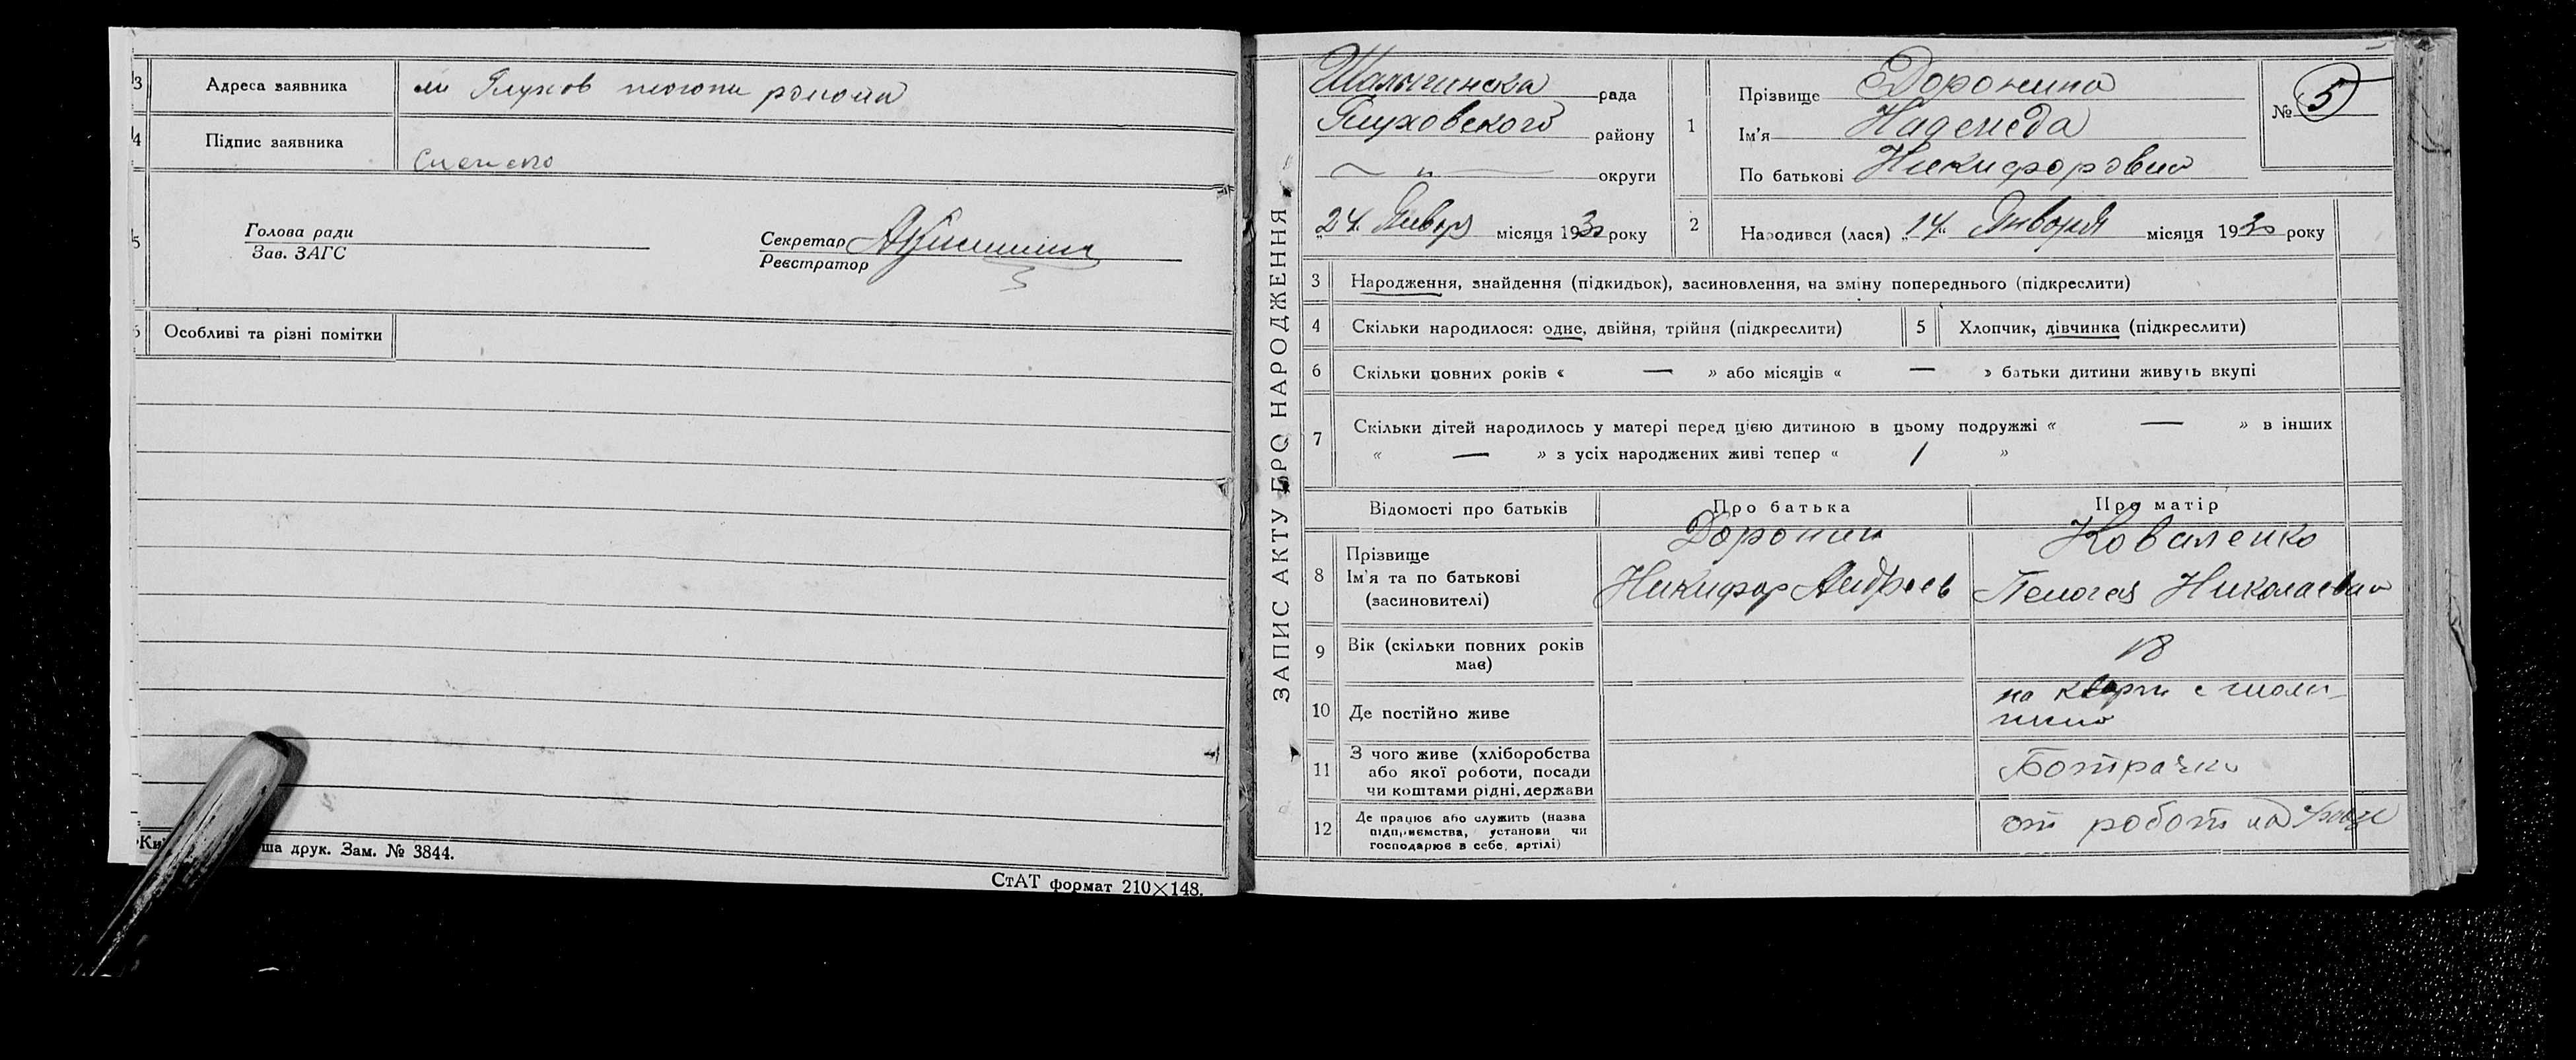 3 Адреса заявника м Глухов
4 Підпис заявника
5 Голова ради
Зав. ЗАГС
Секретар
Реєстратор
6 Особливі та різні помітки
ша друк. Зам. № 3844.
СтАТ формат 210×148.
ЗАПИС АКТУ ПРО НАРОДЖЕННЯ
Шалыгинска рада
Глуховского району
— „ — округи
„24„ Январ місяця 1930 року
1 Прізвище Доронина
Ім'я Надежда
По батькові Никифоровна
№ 5
2 Народився (лася) „14„ Января місяця 1930 року
3 Народження, знайдення (підкидьок), засиновлення, на зміну попереднього (підкреслити)
4 Скільки народилося: одне, двійня, трійня (підкреслити) 5 Хлопчик, дівчинка (підкреслити)
6 Скільки повних років « — » або місяців « — » батьки дитини живуть вкупі
7 Скільки дітей народилось у матері перед цією дитиною в цьому подружжі « — » в інших
« — » з усіх народжених живі тепер « / »
Відомості про батьків Про батька Про матір
8 Прізвище
Ім'я та по батькові
(засиновителі)
Доронин
Никифор Андреев
Коваленко
Пелогея Николаевна
9 Вік (скільки повних років
має)
18
10 Де постійно живе
11 З чого живе (хліборобства
або якої роботи, посади
чи коштами рідні, держави
Ботрачка
12 Де працює або служить (назва
підприємства, установи чи
господарює в себе, артілі)
от работ